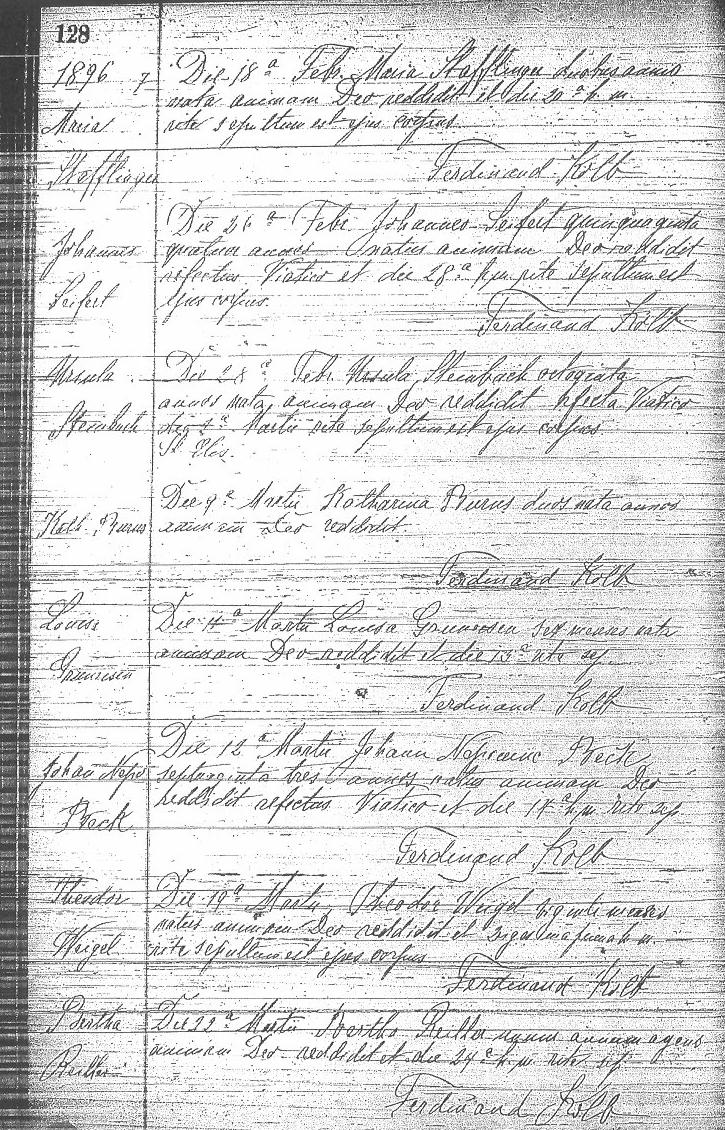 128
1896 7 Die 18ª Febr. Maria Stefflinger duobus annis
nata animam Deo reddidit et die 20ª h. m.
Maria rite sepultum est ejus corpus
Stefflinger Ferdinand Kolb
Die 26ª Febr Johannes Seifert quinquaginta
Johannes quatuor annos natus animam Deo reddidit
refectus Viatico et die 28ª h. m. rite sepultum est
Seifert ejus corpus.
Ferdinand Kolb
Ursula Die 28ª Febr. Ursula Steinbach
annos nata animam Deo reddidit refecta Viatico
Steinbach die Martii rite sepultum est ejus corpus
Die 9ª Martii Katharina Burus duos nata annos
Kath. Burus animam Deo reddidit
Ferdinand Kolb
Louisa Die Martii Louisa sex menses nata
animam Deo reddidit et die 13ª rite sep.
Ferdinand Kolb
Die 12ª Martii Johann Beck
Johan Nepo septuaginta tres annos natus animam Deo
reddidit refectus Viatico et die 14ª h. m. rite sep
Beck
Ferdinand Kolb
Theodor Die 19ª Martii Theodor Weigel menses
natus animam Deo reddidit et
Weigel rite sepultum est ejus corpus
Ferdinand Kolb
Bertha Die Martii Bertha unum annum agens
animam Deo reddidit et die 24ª h. m. rite sep
Ferdinand Kolb